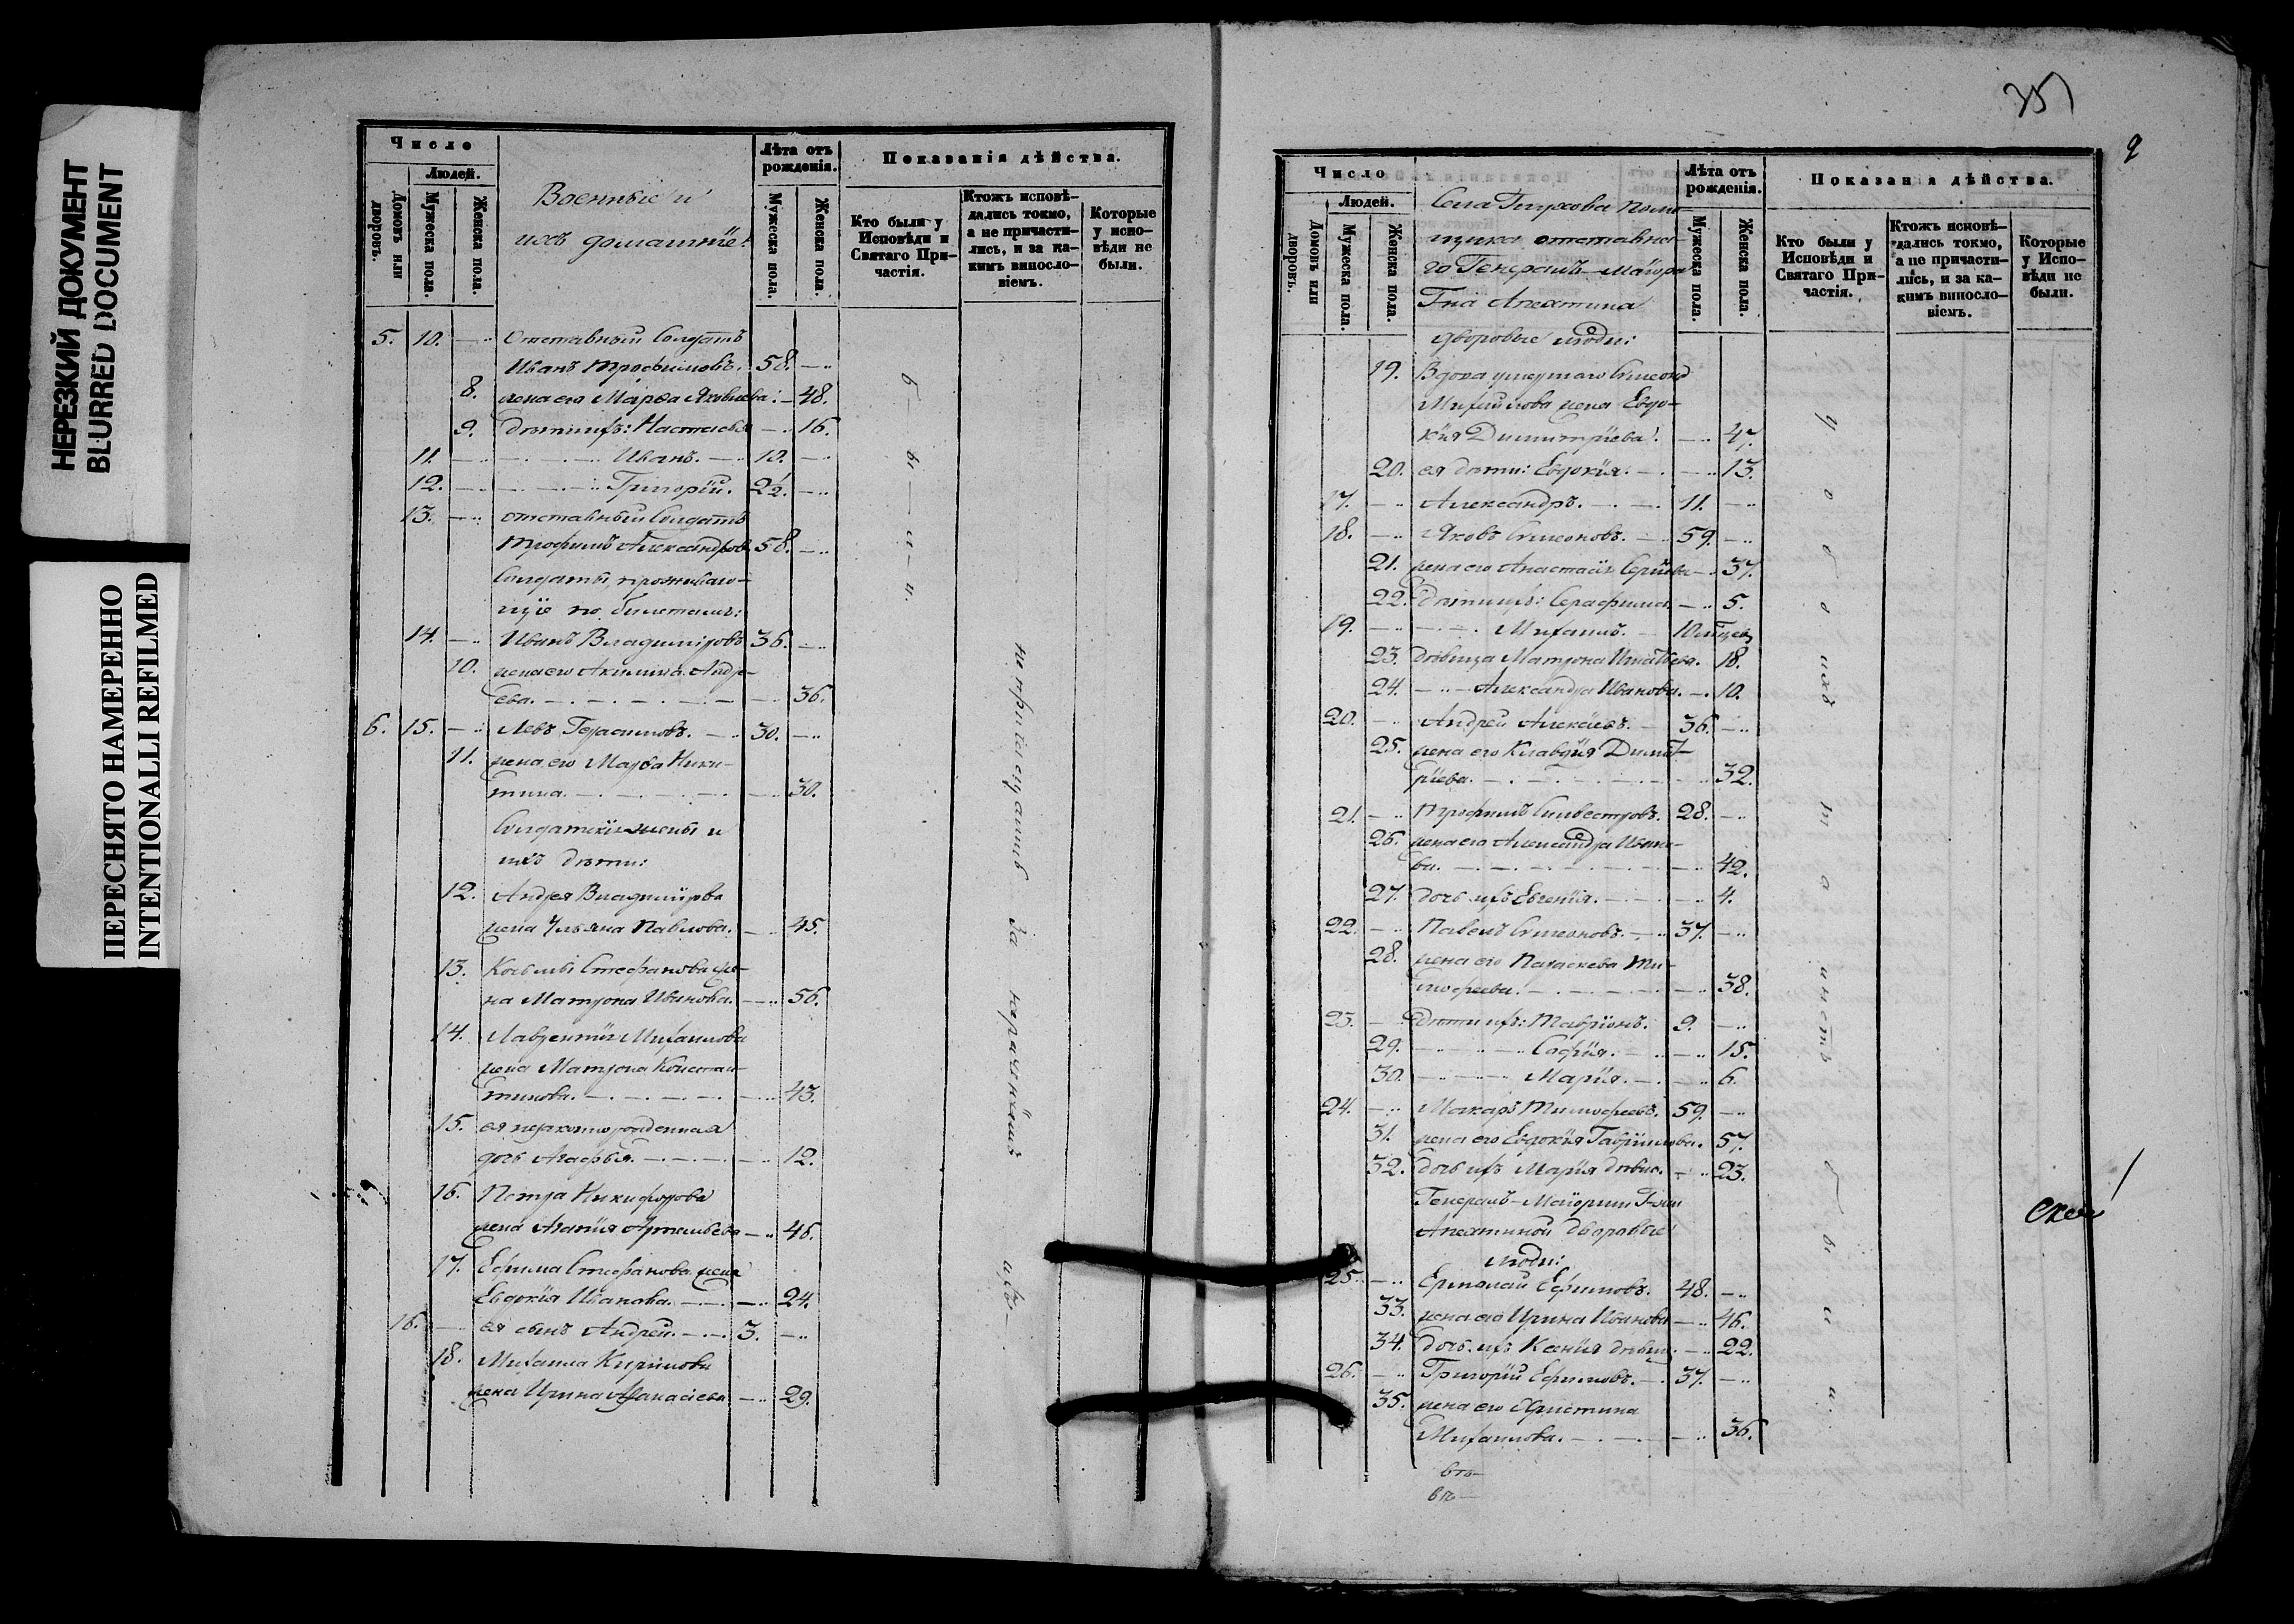 НЕРЕЗКИЙ ДОКУМЕНТ
BLURRED DOCUMENT
ПЕРЕСНЯТО НАМЕРЕННО
INTENTIONALLI REFILMED
Число
Людей.
Домовъ или дворовъ.
Мужеска пола.
Женска пола.
Военные и
ихъ домашніе:
Лѣта отъ рожденія.
Мужеска пола.
Женска пола.
Показанія дѣйства.
Кто были у Исповѣди и Святаго При-частія.
Ктожъ исповѣ-дались токмо, а не причасти-лись, и за ка-кимъ виносло-віемъ.
Которые у испо-вѣди не были.
5. 10. Отставный Солдатъ
Иванъ Трофимовъ. 58.
8. жена его Марѳа Яковлева: 48.
9. дѣти ихъ: Настасья 16.
11. Иванъ. 10.
12. Григорій. 2½.
13. отставный Солдатъ
Трофимъ Александровъ 58.
Солдаты, проживаю-
щіе по билетамъ:
14. Иванъ Владиміровъ 36.
10. жена его Акилина Андре-
ева. 36.
6. 15. Левъ Герасимовъ. 30.
11. жена его Марѳа Ники-
тина. 30.
Солдатскія жены и
ихъ дѣти:
12. Андрея Владимірова
жена Ульяна Павлова. 45.
13. Косьмы Стефанова же-
на Матрона Иванова. 56.
14. Лаврентія Михаилова
жена Матрона Констан-
тинова. 43.
15. ея незаконнорожденная
дочь Агафья. 12.
16. Петра Никифорова
жена Агапія Артемьева 46.
17. Ефима Стефанова жена
Евдокія Иванова. 24.
16. ея сынъ Андрей. 3.
18. Михаила Кирилова
жена Ирина Аѳанасіева 29.
б ы л и.
351
9
Число
Людей.
Домовъ или дворовъ.
Мужеска пола.
Женска пола.
Села Глухова поме-
щика отставна-
го Генералъ-Маіора
Гна Апехтина
дворовые люди:
Лѣта отъ рожденія.
Мужеска пола.
Женска пола.
Показан я дѣйства.
Кто были у Исповѣди и Святаго При-частія.
Ктожъ исповѣ-дались токмо, а не причасти-лись, и за ка-кимъ виносло-віемъ.
Которые у Испо-вѣди не были.
19. Вдова умершаго Симеона
Михайлова жена Евдо-
кія Димитріева. 47.
20. ея дѣти: Евдокія. 13.
17. Александръ. 11.
18. Яковъ Симеоновъ. 59.
21. жена его Анастасія Сергіева 37.
22. дѣти ихъ: Серафима 5.
19. Михаилъ. 10
23. дѣвица Матрона Игнатьева. 18.
24. Александра Иванова. 10.
20. Андрей Алексѣевъ. 36.
25. жена его Клавдія Димит-
ріева. 32.
21. Трофимъ Силвестровъ. 28.
26. жена его Александра Ивано-
ва. 42.
27. дочь ихъ Евгенія. 4.
22. Павелъ Симеоновъ. 37.
28. жена его Параскева Ти-
мофеева. 38.
23. дѣти ихъ: Гавріилъ. 9.
29. Софія. 15.
30. Марія. 6.
24. Макаръ Тимофеевъ. 59.
31. жена его Евдокія Гавріилова. 57.
32. дочь ихъ Марія дѣвиц. 23.
Генералъ-Маіорши Г-жи
Апехтиной дворовые
люди:
25. Ермолай Ефимовъ. 48.
33. жена его Ирина Иванова 46.
34. дочь ихъ Ксенія дѣвиц. 22.
26. Григорій Ефимовъ. 37.
35. жена его Христина
Михаилова. 36.
б ы л и.